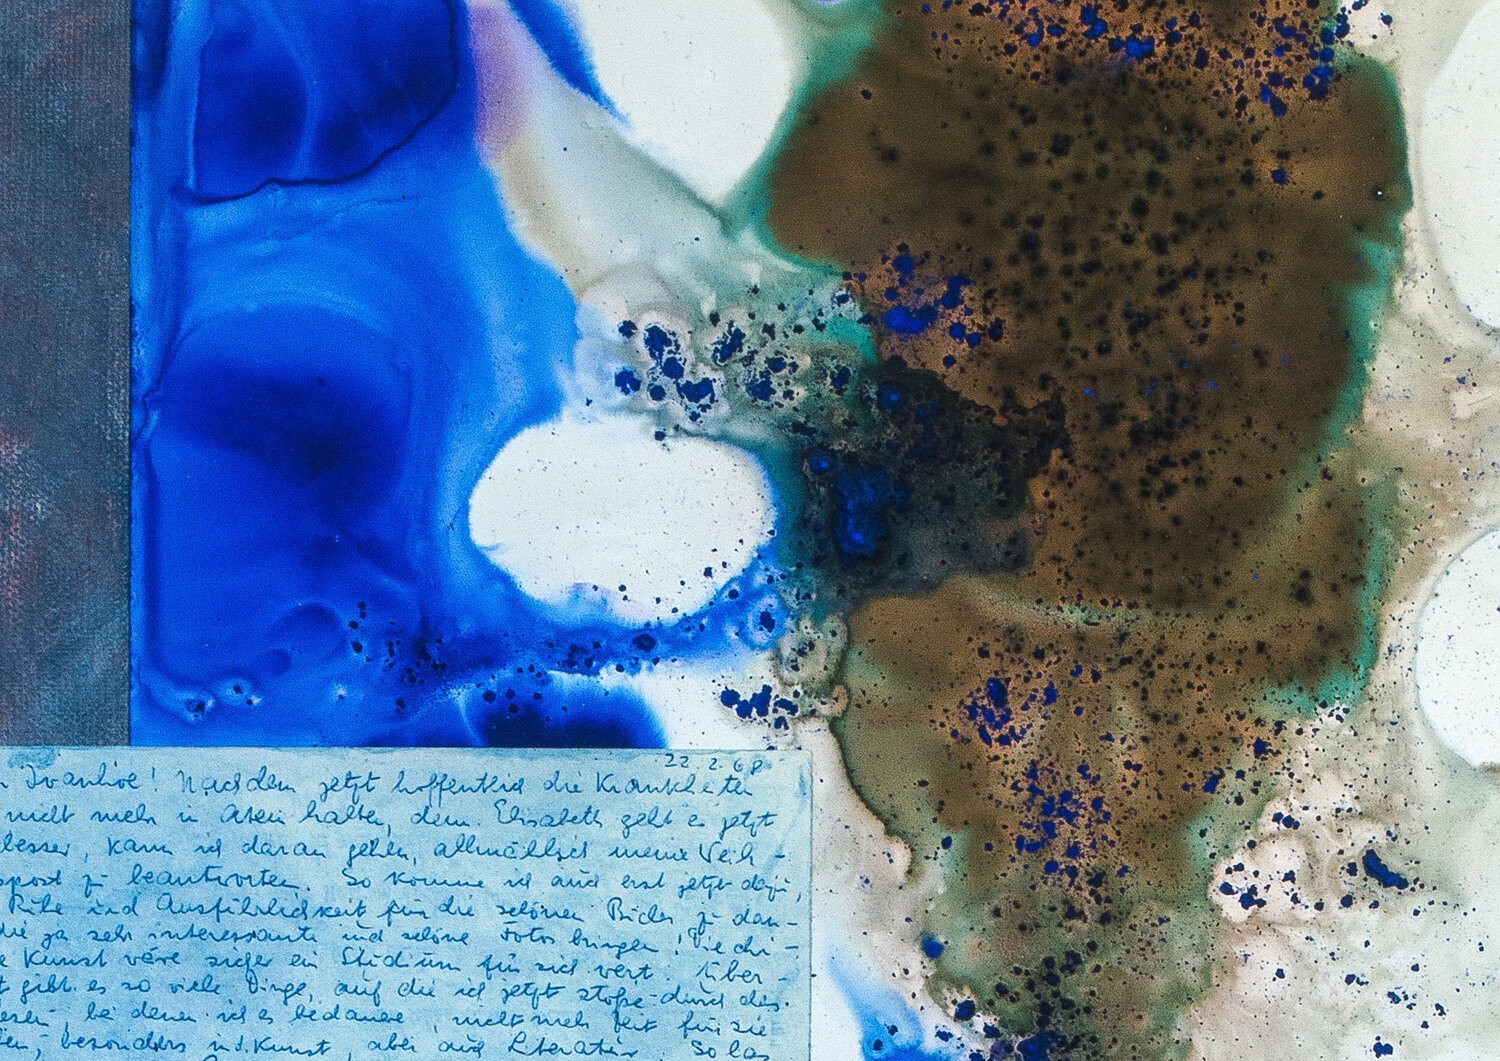 22.2.68
Ivanhoe! Nachdem jetzt hoffentlich die Krankheiten
nicht mehr in Atem halten, dem Elisabeth geht es jetzt
besser, kann ich daran gehen, allmählich meine Weih-
spost zu beantworten. So komme ich auch erst jetzt dazu,
Ruhe und Ausführlichkeit für die schönen Bücher zu dan-
die ja sehr interessante und schöne Fotos bringen! Die chi-
e Kunst wäre sicher ein Studium für sich wert. Über-
t gibt es so viele Dinge, auf die ich jetzt stoße durch das
esen, bei denen ich es bedauere, nicht mehr Zeit für sie
en, besonders in d. Kunst, aber auch Literatur. So las